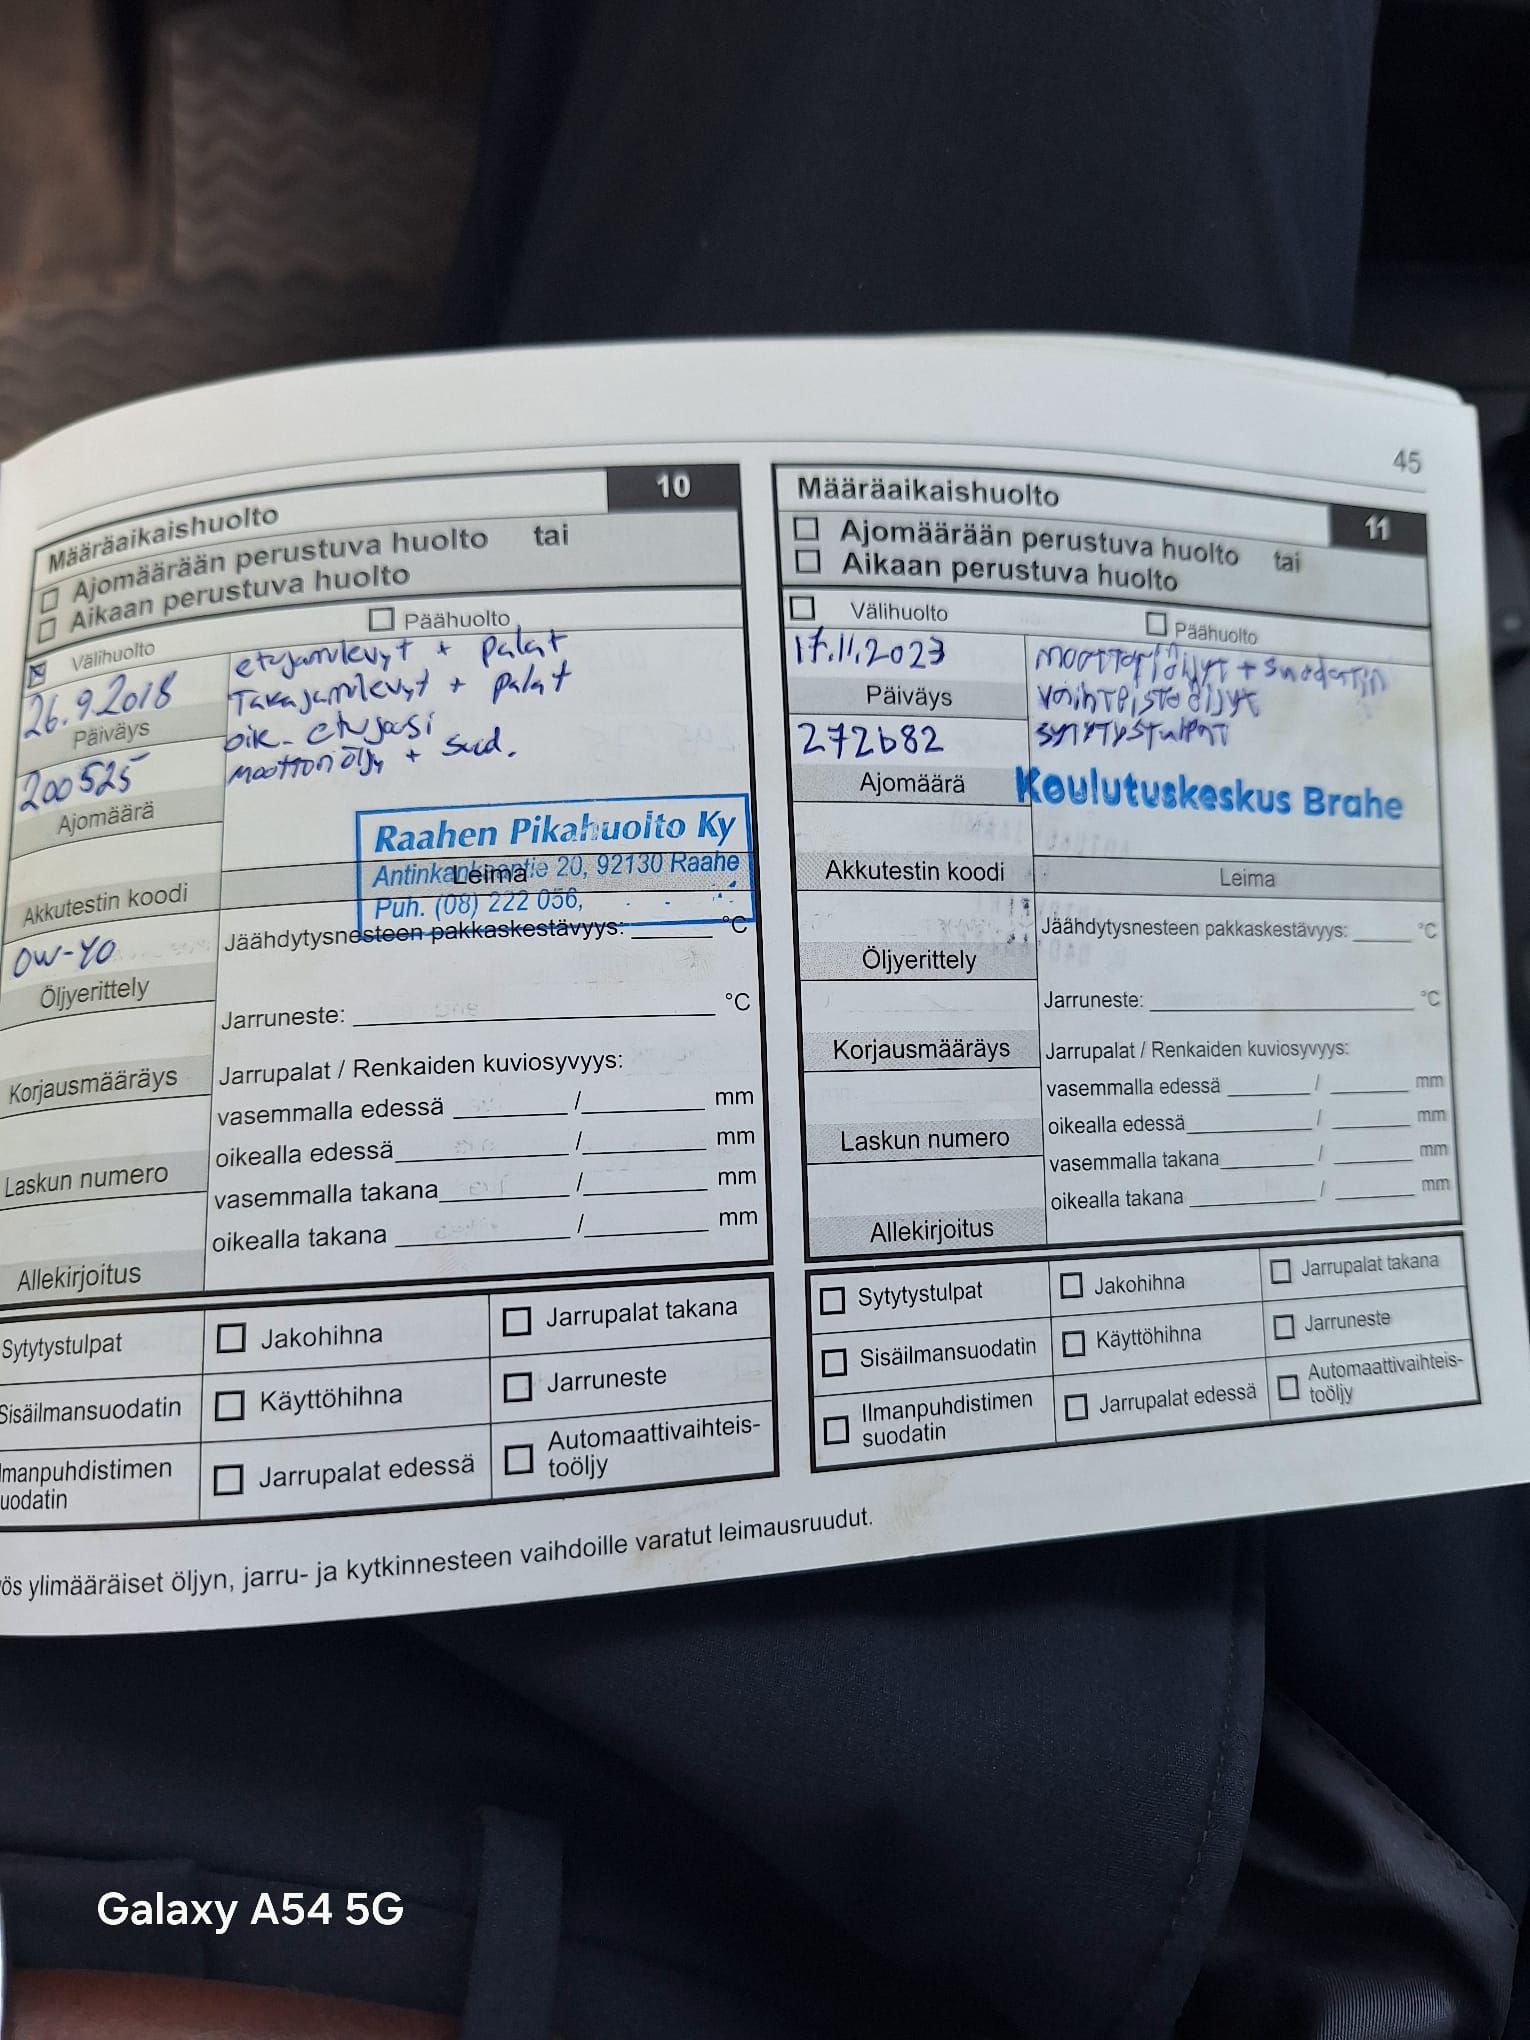 45
Määräaikaishuolto 10
Ajomäärään perustuva huolto tai
Aikaan perustuva huolto
Välihuolto
Päähuolto
26.9.2018
Päiväys
200525
Ajomäärä
Akkutestin koodi
0W-40
Öljyerittely
Korjausmääräys
Laskun numero
Allekirjoitus
etujarrulevyt + palat
Takajarrulevyt + palat
oik. etujousi
moottoriöljy + suod.
Raahen Pikahuolto Ky
Antinkankaantie 20, 92130 Raahe
Leima
Puh. (08) 222 056,
Jäähdytysnesteen pakkaskestävyys: °C
Jarruneste: °C
Jarrupalat / Renkaiden kuviosyvyys:
vasemmalla edessä / mm
oikealla edessä / mm
vasemmalla takana / mm
oikealla takana / mm
Sytytystulpat Jakohihna Jarrupalat takana
Sisäilmansuodatin Käyttöhihna Jarruneste
lmanpuhdistimen
uodatin
Jarrupalat edessä
Automaattivaihteis-
toöljy
Määräaikaishuolto 11
Ajomäärään perustuva huolto tai
Aikaan perustuva huolto
Välihuolto
Päähuolto
17.11.2023
Päiväys
272682
Ajomäärä
Akkutestin koodi
Öljyerittely
Korjausmääräys
Laskun numero
Allekirjoitus
moottoriöljyt + suodatin
vaihteistoöljyt
sytytystulpat
Koulutuskeskus Brahe
Leima
Jäähdytysnesteen pakkaskestävyys: °C
Jarruneste: °C
Jarrupalat / Renkaiden kuviosyvyys:
vasemmalla edessä / mm
oikealla edessä / mm
vasemmalla takana / mm
oikealla takana / mm
Sytytystulpat Jakohihna Jarrupalat takana
Sisäilmansuodatin Käyttöhihna Jarruneste
Ilmanpuhdistimen
suodatin
Jarrupalat edessä
Automaattivaihteis-
toöljy
ös ylimääräiset öljyn, jarru- ja kytkinnesteen vaihdoille varatut leimausruudut.
Galaxy A54 5G